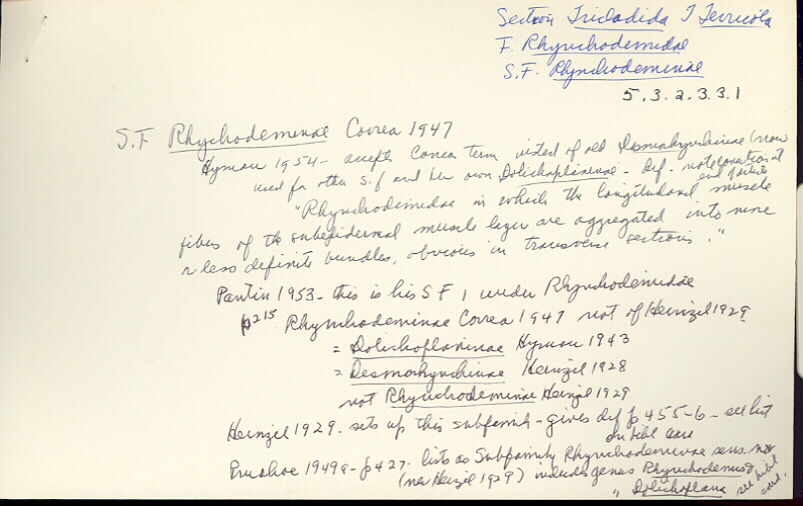 Section Tricladida T Terricola
F. Rhynchodemidae
S.F. Rhynchodeminae
5.3.2.3.3.1
S.F Rhychodeminae Correa 1947
Hyman 1954 - accepts Correa term insted of old Desmorhynchinae (now
used for other S.f and her own Dolichoplaninae - Def. - note location at
end of article
"Rhynchodemidae in which the longitudinal muscle
fibers of the subepidermal muscle layer are aggregated into more
or less definite bundles, obvious in transverse sections."
Pantin 1953 - this is his S F 1 under Rhynchodemidae
p215 Rhynchodeminae Correa 1947 not of Heinzel 1929
= Dolichoplaninae Hyman 1943
= Desmorhynchinae Heinzel 1928
not Rhynchodeminae Heinzel 1929
Heinzel 1929 - sets up this subfamily - gives def p 455-6 - see list
on bibl card
Prudhoe 1949a - p427. lists as Subfamily Rhynchodeminae sens. nov
(nec Heinzel 1929) includes genus Rhynchodemus
" Dolichoplana see bibl
card.